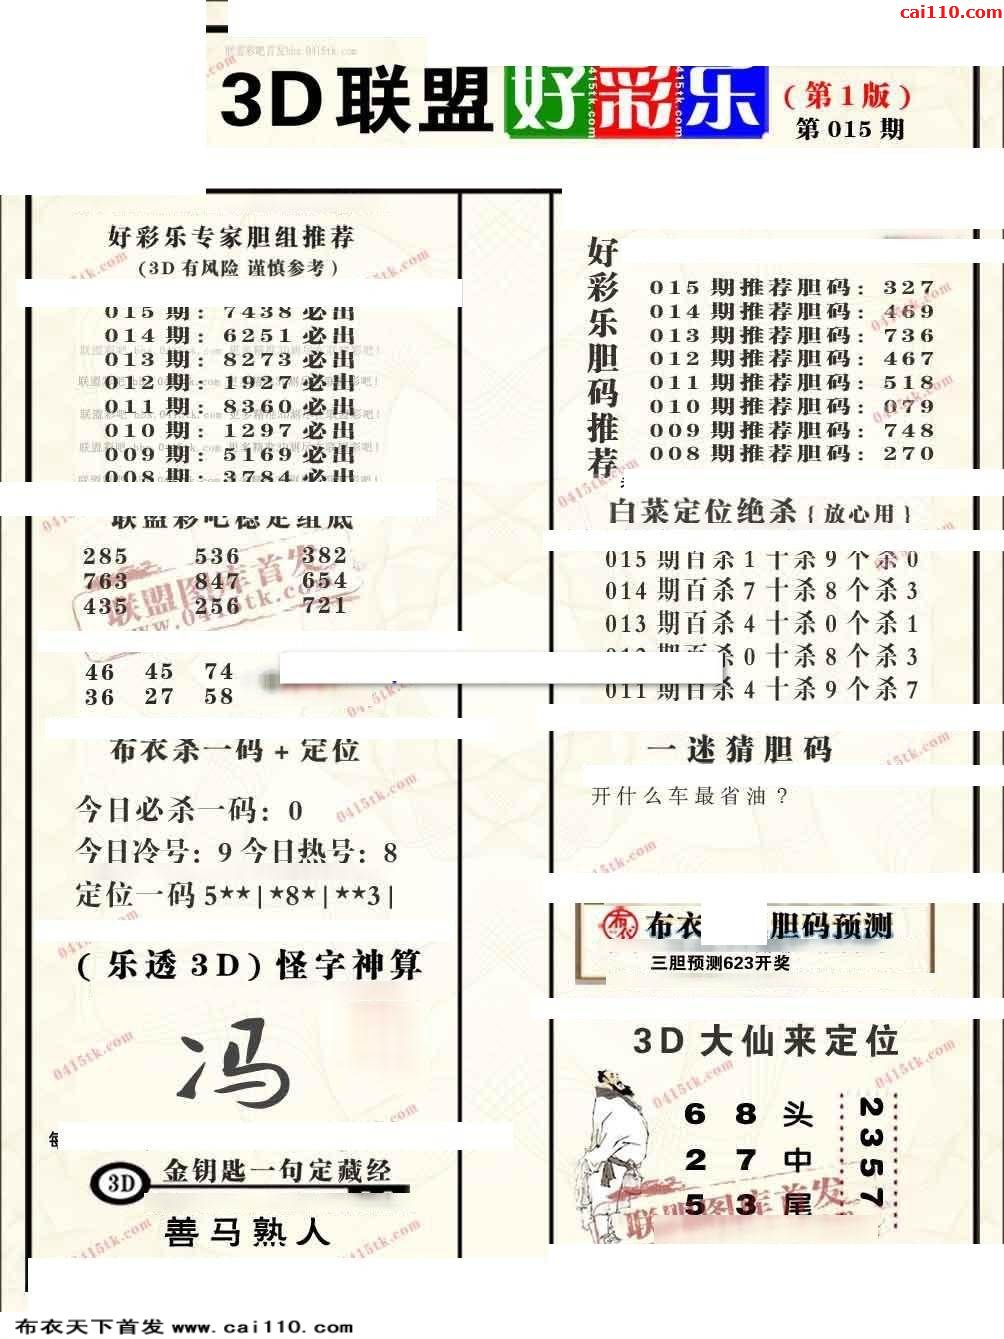 cai110.com
联盟彩吧首发bbs.0415tk.com
3D联盟好彩乐
(第1版)
第 015 期
好彩乐专家胆组推荐
(3D有风险 谨慎参考)
015期: 7438必出
014期: 6251必出
013期: 8273必出
012期: 1927必出
011期: 8360必出
010期: 1297必出
009期: 5169必出
008期: 3784必出
联盟彩吧稳定组底
285 536 382
763 847 654
435 256 721
46 45 74
36 27 58
布衣杀一码+定位
今日必杀一码: 0
今日冷号: 9 今日热号: 8
定位一码 5**|*8*|**3|
(乐透3D)怪字神算
冯
每
3D 金钥匙一句定藏经
善马熟人
好彩乐胆码推荐
015期推荐胆码: 327
014期推荐胆码: 469
013期推荐胆码: 736
012期推荐胆码: 467
011期推荐胆码: 518
010期推荐胆码: 079
009期推荐胆码: 748
008期推荐胆码: 270
白菜定位绝杀{放心用}
015期百杀1十杀9个杀0
014期百杀7十杀8个杀3
013期百杀4十杀0个杀1
012期百杀0十杀8个杀3
011期百杀4十杀9个杀7
一迷猜胆码
开什么车最省油?
布衣 布衣 胆码预测
三胆预测623开奖
3D大仙来定位
6 8 头
2 7 中
5 3 尾
2357
联盟图库首发
www.0415tk.com
联盟图库首发
0415tk.com
布衣天下首发 www.cai110.com